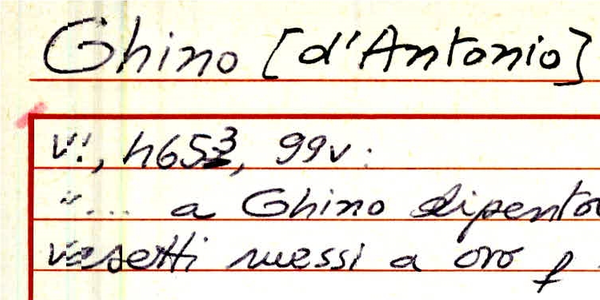 Ghino [d'Antonio]
V:, h653, 99v:
"... a Ghino dipento
vasetti messi a oro p